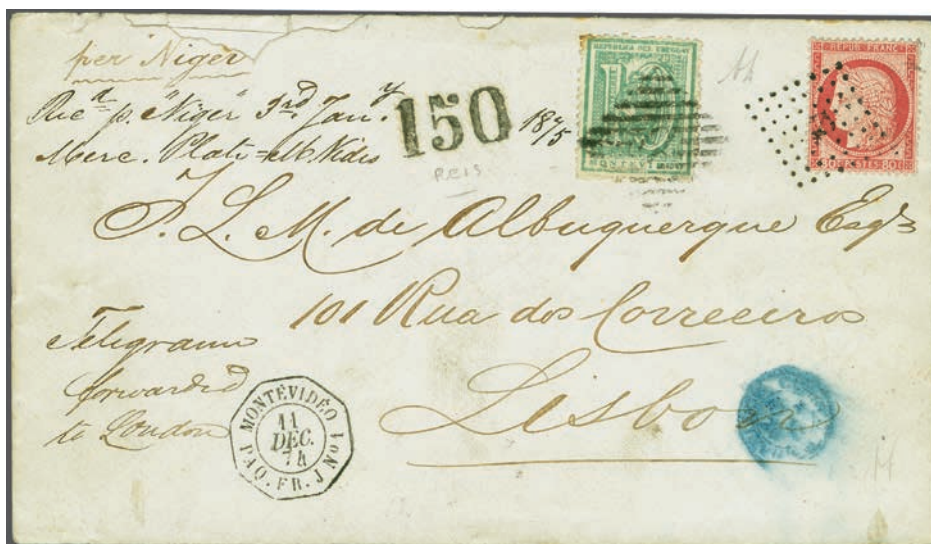 per Niger
Recd p. "Niger" 3rd Jany 1875
Merc. Plate = M. Video
150
REIS
REPUBLICA DEL URUGUAY
10
MONTEVI
REPUB. FRANC.
80 POSTES 80
P. L. M. de Albuquerque Esqre
101 Rua dos Correeiros
Lisbon
Telegram
forwarded
to London
MONTÉVIDÉO
11
DEC.
74
PAQ. FR. J No 1